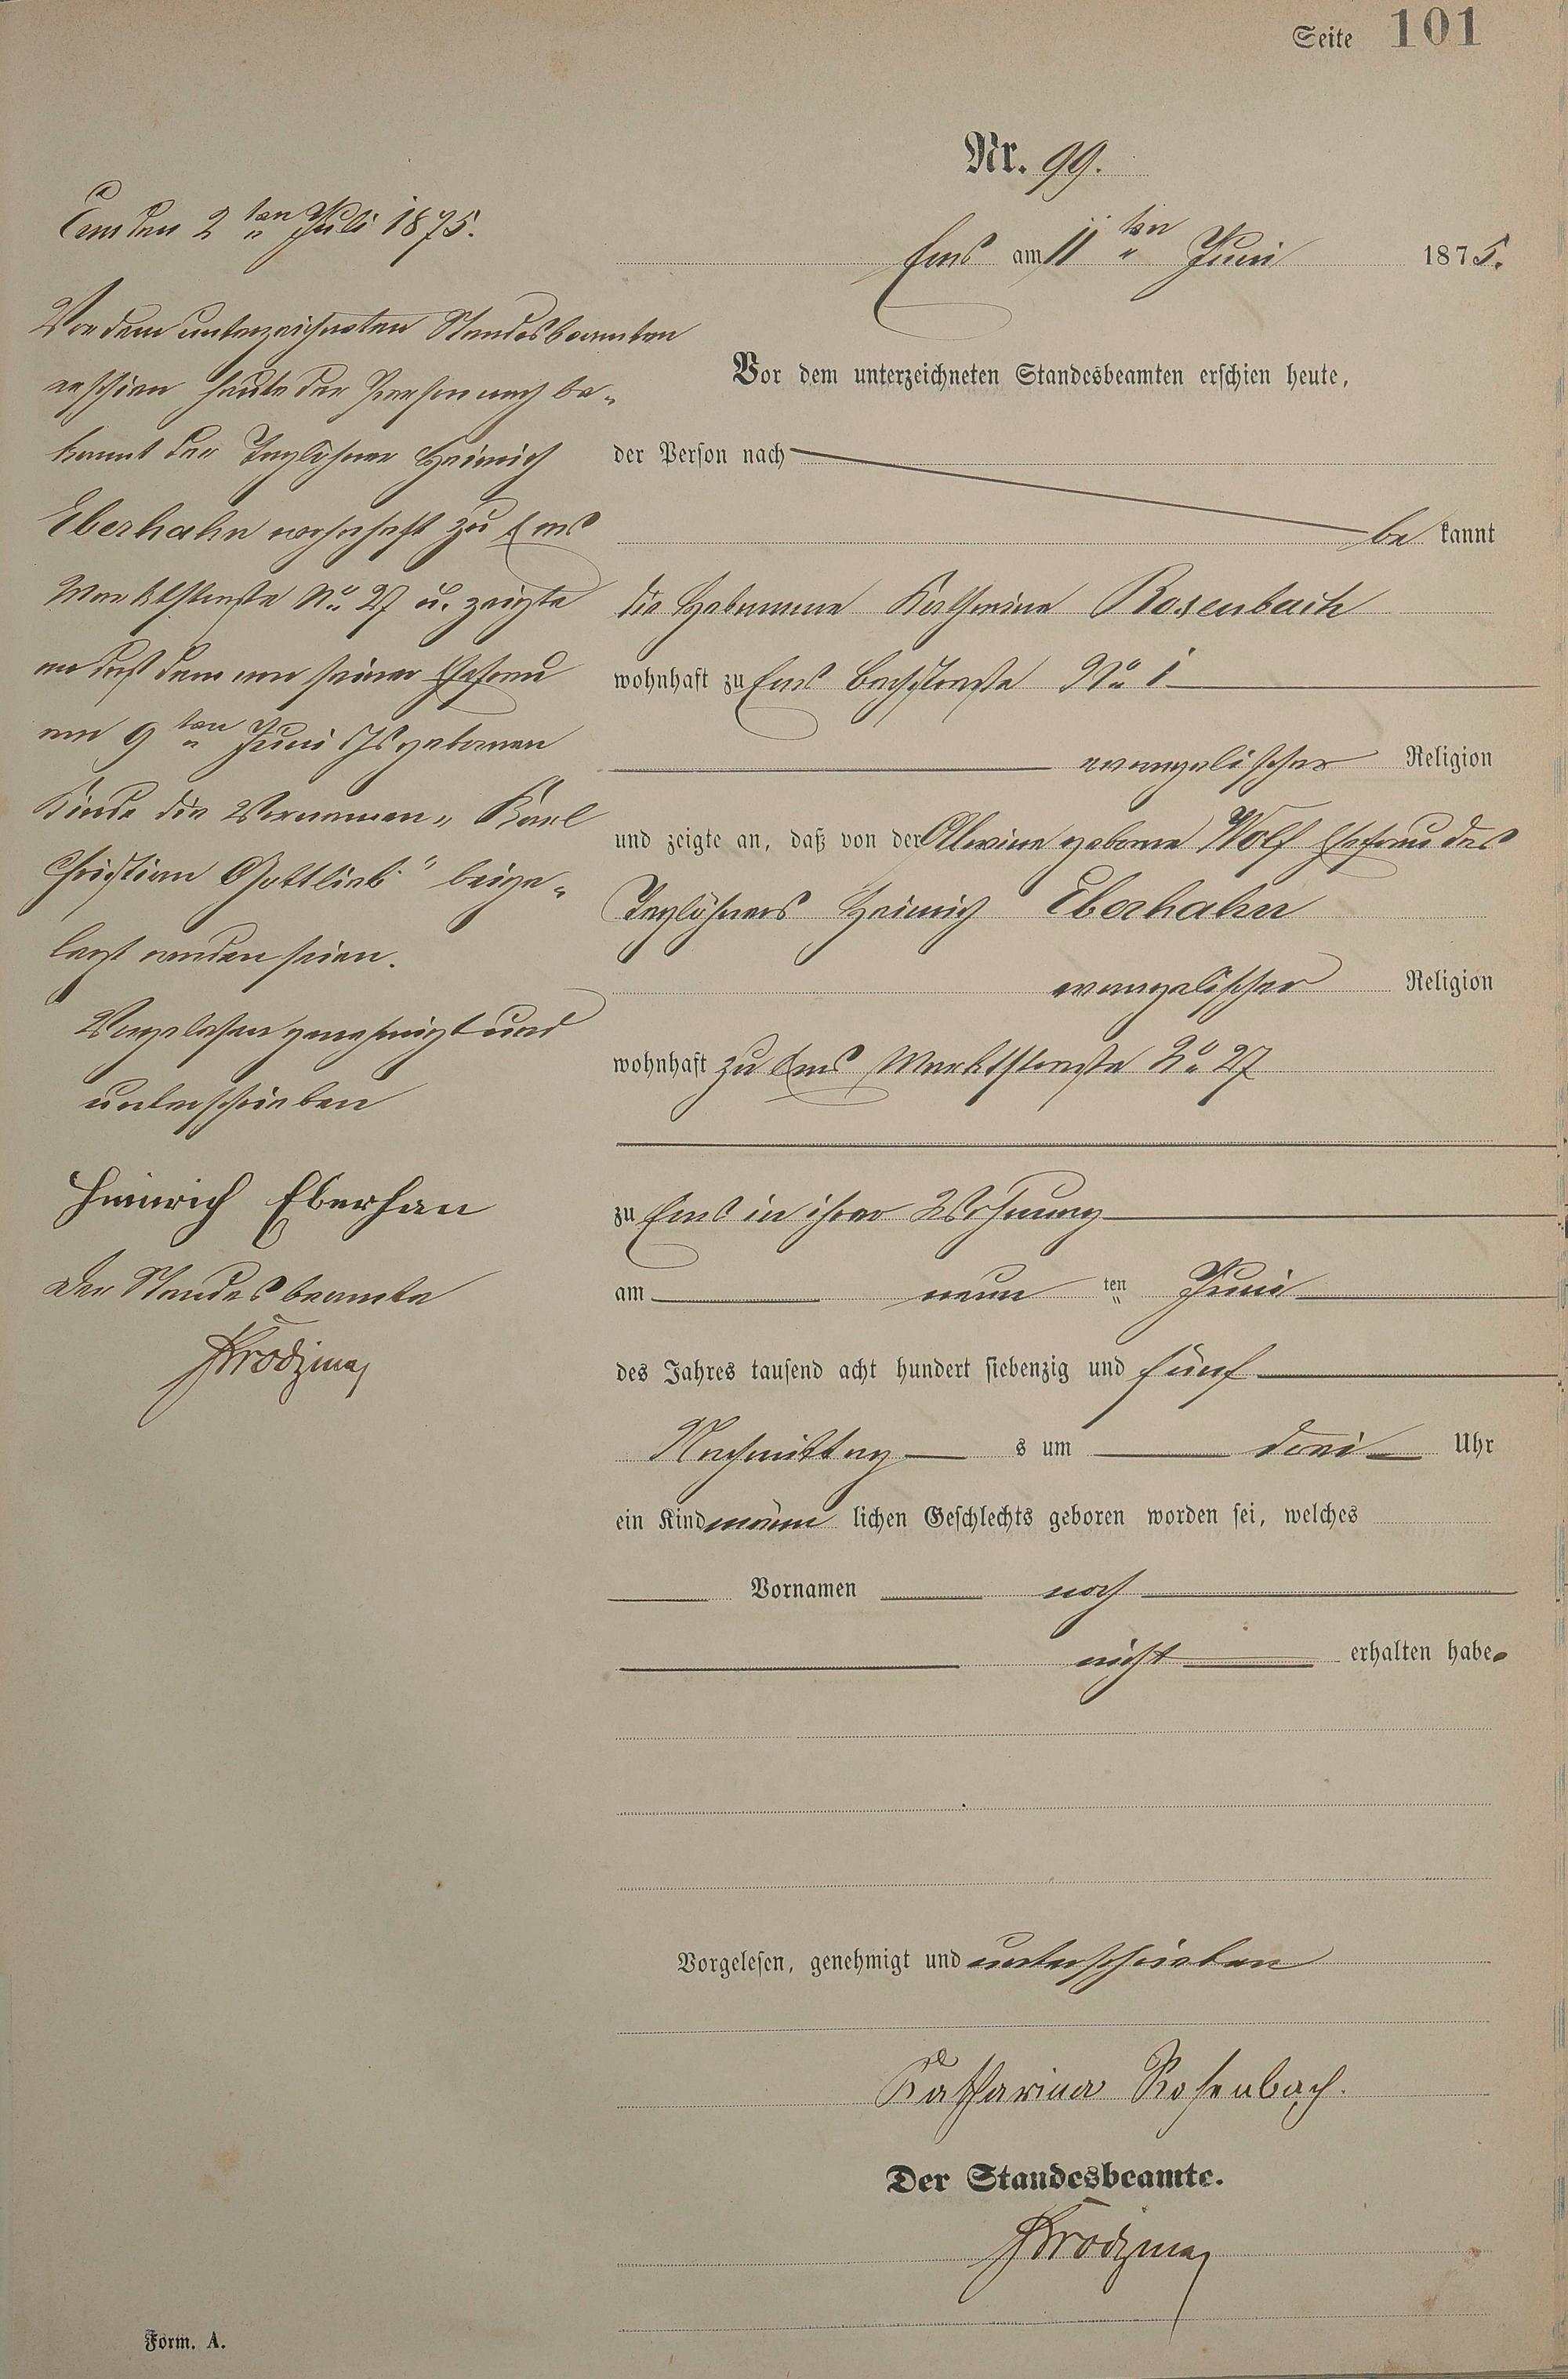 Seite 101
Nr. 99.
Ems am 11ten Juni 1875.
Vor dem unterzeichneten Standesbeamten erschien heute,
der Person nach
bekannt
die Hebamme Katharina Rosenbach
wohnhaft zu Ems Bachstraße No. 1
evangelischer Religion
und zeigte an, daß von der Alwine geborne Wolf Ehefrau des
Taglöhners Heinrich Eberhahn
evangelischer Religion
wohnhaft zu Ems Marktstraße No. 27
zu Ems in ihrer Wohnung
am neun ten Juni
des Jahres tausend acht hundert siebenzig und fünf
Nachmittag s um drei Uhr
ein Kind männ lichen Geschlechts geboren worden sei, welches
Vornamen noch
nicht erhalten habe.
Vorgelesen, genehmigt und unterschrieben
Katharina Rosenbach.
Der Standesbeamte.
Ems den 2ten Juli 1875.
Vor dem unterzeichneten Standesbeamten
erschien heute der Person nach be-
kannt der Taglöhner Heinrich
Eberhahn wohnhaft zu Ems
Marktstraße No. 27 u. zeigte
an daß dem von seiner Ehefrau
am 9ten Juni geborenen
Kinde die Vornamen „Karl
Christian Gottlieb" beige-
legt worden seien.
Vorgelesen genehmigt und
unterschrieben
Heinrich Eberhan
Der Standesbeamte
Form. A.